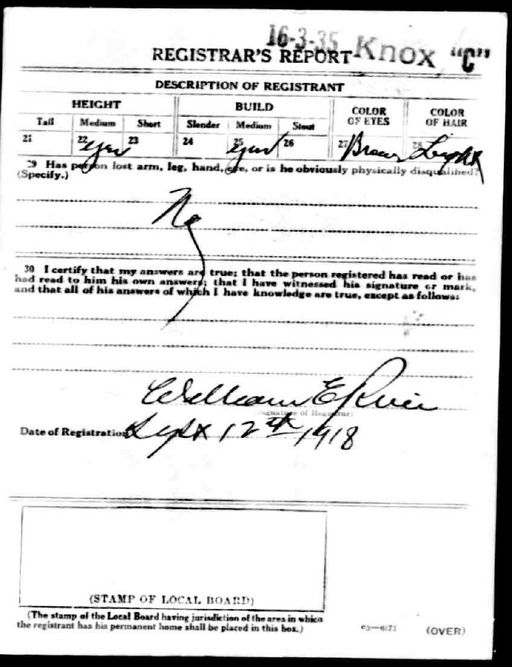 16-3-35 Knox "C"
REGISTRAR'S REPORT
DESCRIPTION OF REGISTRANT
HEIGHT BUILD COLOR OF EYES COLOR OF HAIR
Tall Medium Short Slender Medium Stout
21 22 yes 23 24 25 yes 26 27 Brown 28 Light
29 Has person lost arm, leg, hand, eye, or is he obviously physically disqualified?
(Specify.)
No
30 I certify that my answers are true; that the person registered has read or has
had read to him his own answers; that I have witnessed his signature or mark,
and that all of his answers of which I have knowledge are true, except as follows:
William E
(Signature of Registrar)
Date of Registration Sept 12th 1918
(STAMP OF LOCAL BOARD)
(The stamp of the Local Board having jurisdiction of the area in which
the registrant has his permanent home shall be placed in this box.)
(OVER)